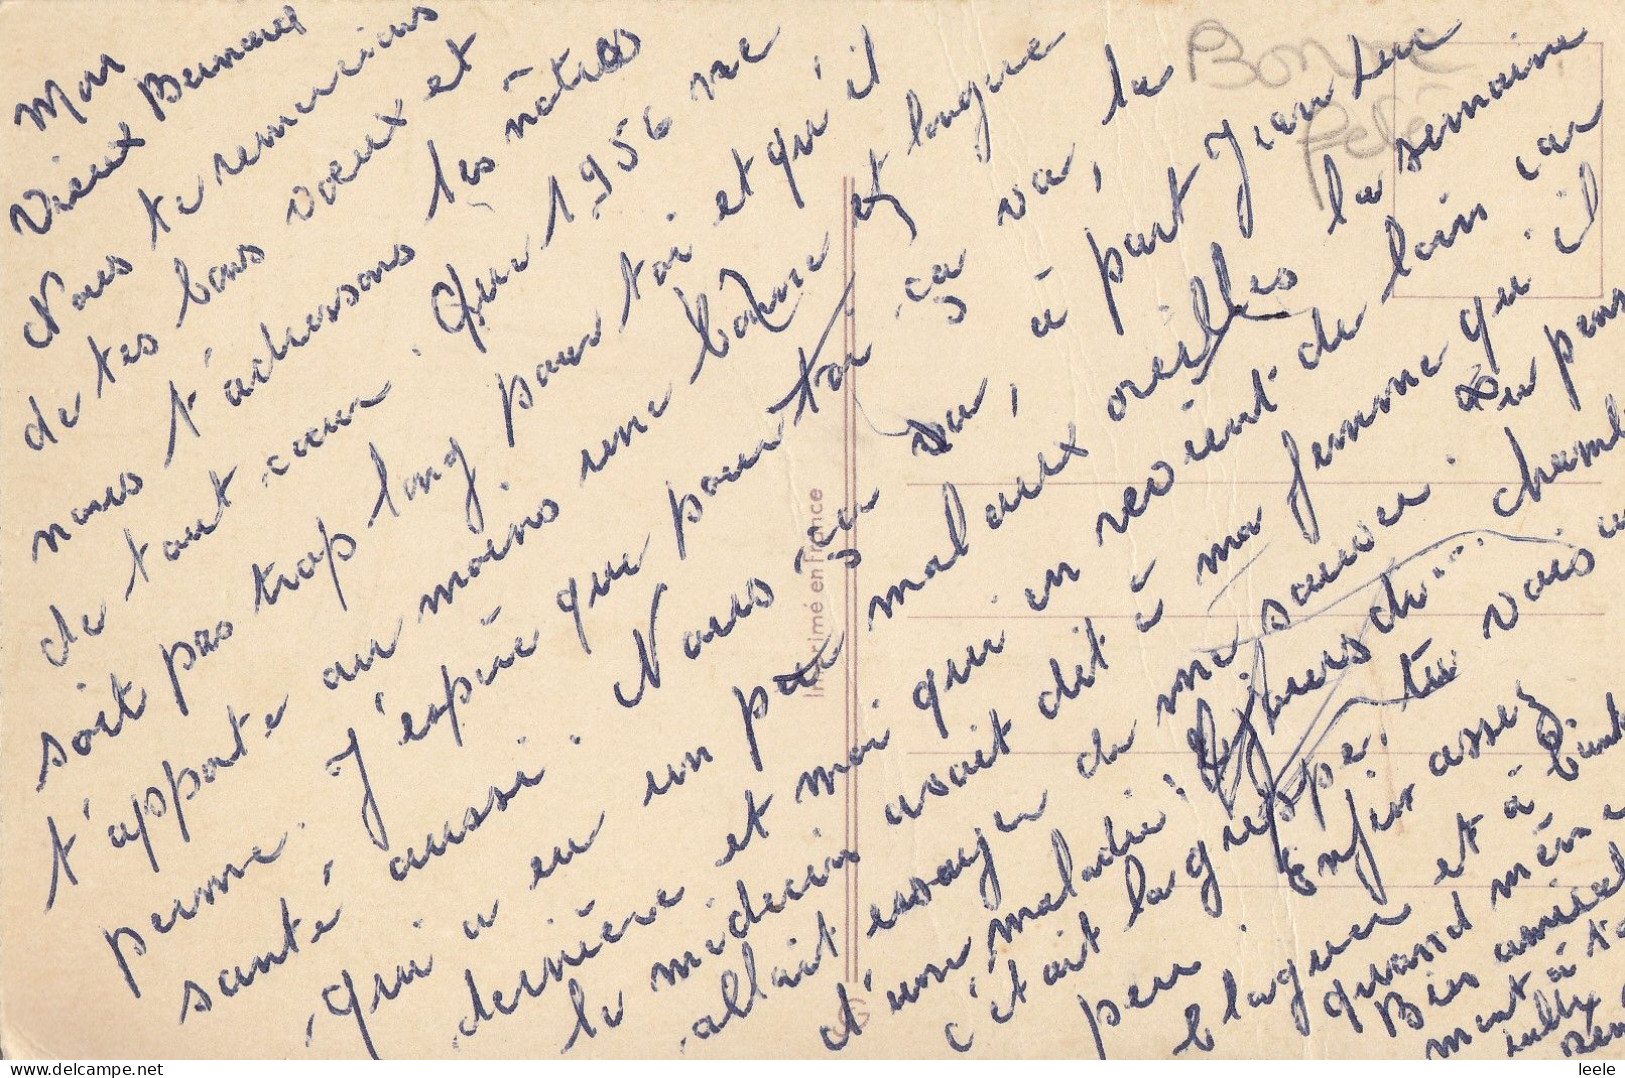 Mon
vieux Bernard
Nous te remercions
de tes bons voeux et
nous t'adressons les nôtres
de tout coeur. Que 1956 ne
soit pas trop long pour toi et qu'il
t'apporte au moins une bonne et longue
perme. J'espère que pour toi ça va, la
santé aussi. Nous ça va, à part Jean Luc
qui a eu un peu mal aux oreilles la semaine
dernière et moi qui en revient de loin car
le médecin avait dit à ma femme qu'il
allait essayer de me sauver. Tu pens
d'une maladie! 8 jours du... chamb
c'était la grippe. tu vois u
peu. Enfin assez
blaguer et à bient
quand même
Bien amical
ment à t
Bonne
fête
Imprimé en France
leele